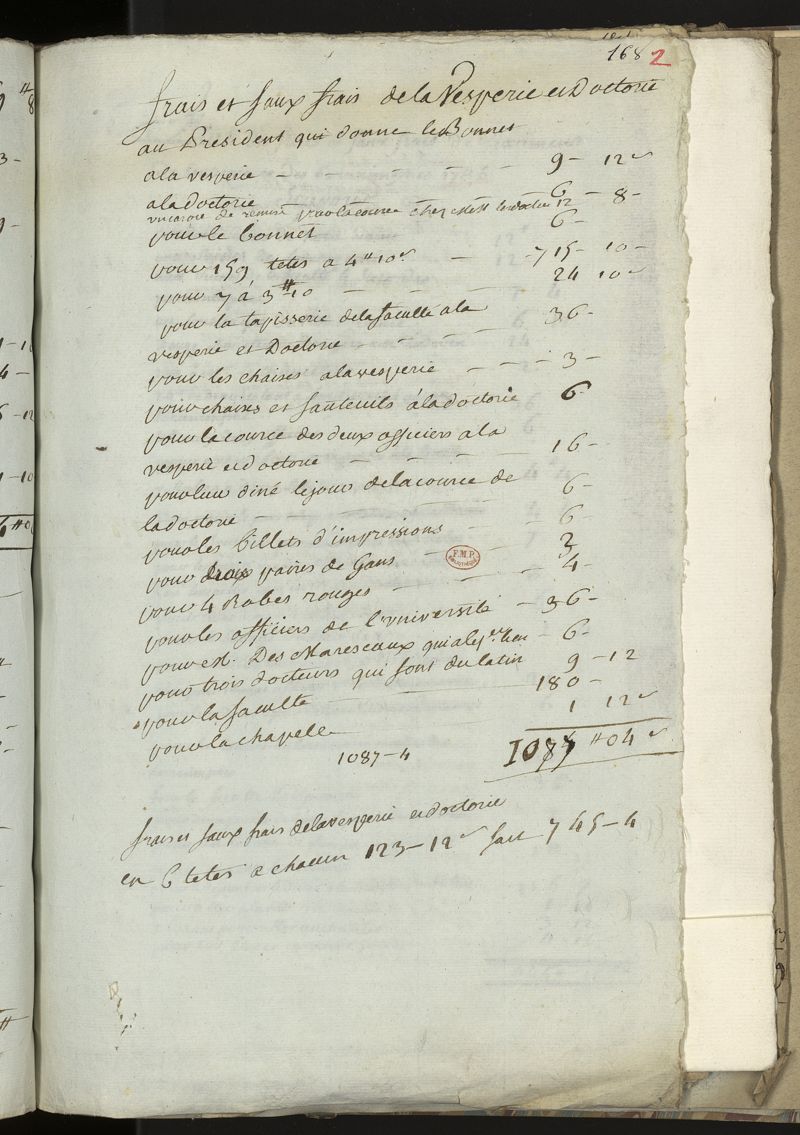 168 2
frais et faux frais de la Vesperie et Doctorie
au President qui donne le Bonnet
a la vesperie - - - - - - 9 - 12 s
a la doctorie - - - - - - 6 - 8 -
un carosse de remise pour la course chez mess les docteurs 12
pour le bonnet 6 -
pour 159 tetes a 4 ₶ 10 s - - 715 - 10 -
pour 7 à 3 ₶ 10 - - - - 24 10 s
pour la tapisserie de la faculté a la
vesperie et Doctorie - - - - 36 -
pour les chaises a la vesperie - - - - 3 -
pour chaises et fauteuils à la doctorie 6
pour la cource des deux officiers a la
vesperie et doctorie - - - - 16 -
pour leur diné le jour de la cource de
la doctorie - - - - - - 6 -
pour les billets d'impressions - - 6
pour trois paires de Gans - - 3
pour 4 Robes rouges - - - - 4 -
pour les officiers de l'université - 36 -
pour M. Des Mareseaux qui a le 1er lieu - 6 -
pour trois docteurs qui font du latin 9 - 12
pour la faculté 180 -
pour la chapelle 1 12 s
1087 - 4 1087 ₶ 04 s
frais et faux frais de la vesperie et doctorie
en 6 tetes a chacun 123 - 12 s fait 745 - 4
F.M.P.
BIBLIOTHÈQUE